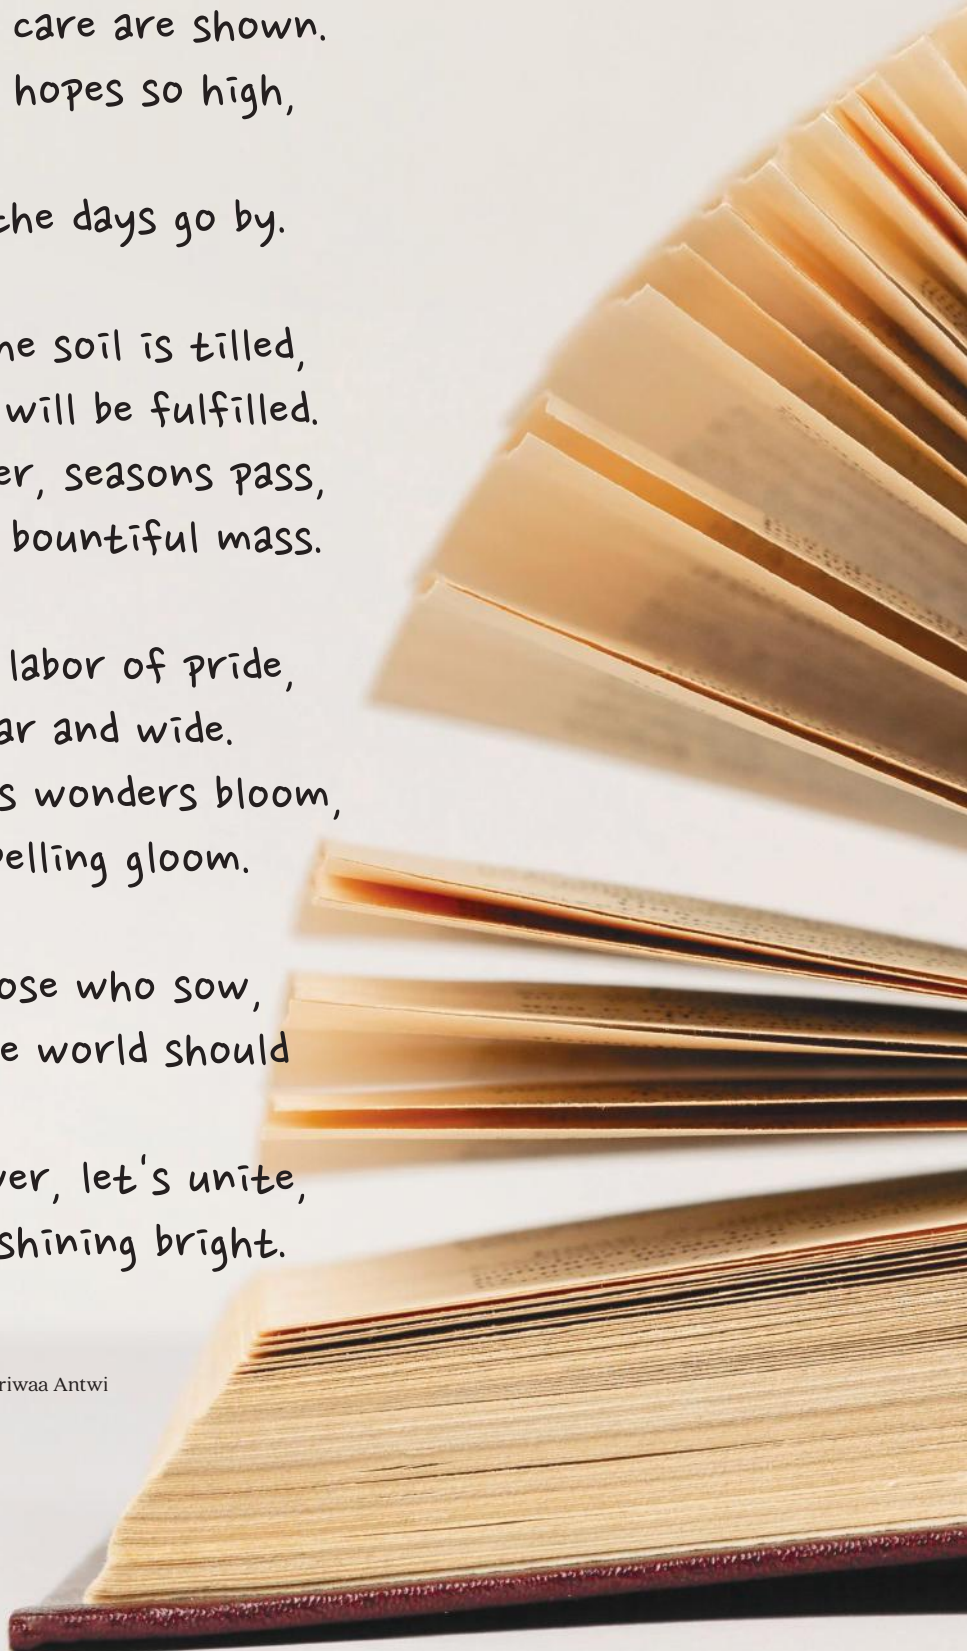 care are shown.
hopes so high,
the days go by.
soil is tilled,
will be fulfilled.
seasons pass,
bountiful mass.
labor of pride,
and wide.
wonders bloom,
gloom.
who sow,
world should
let's unite,
shining bright.
Antwi